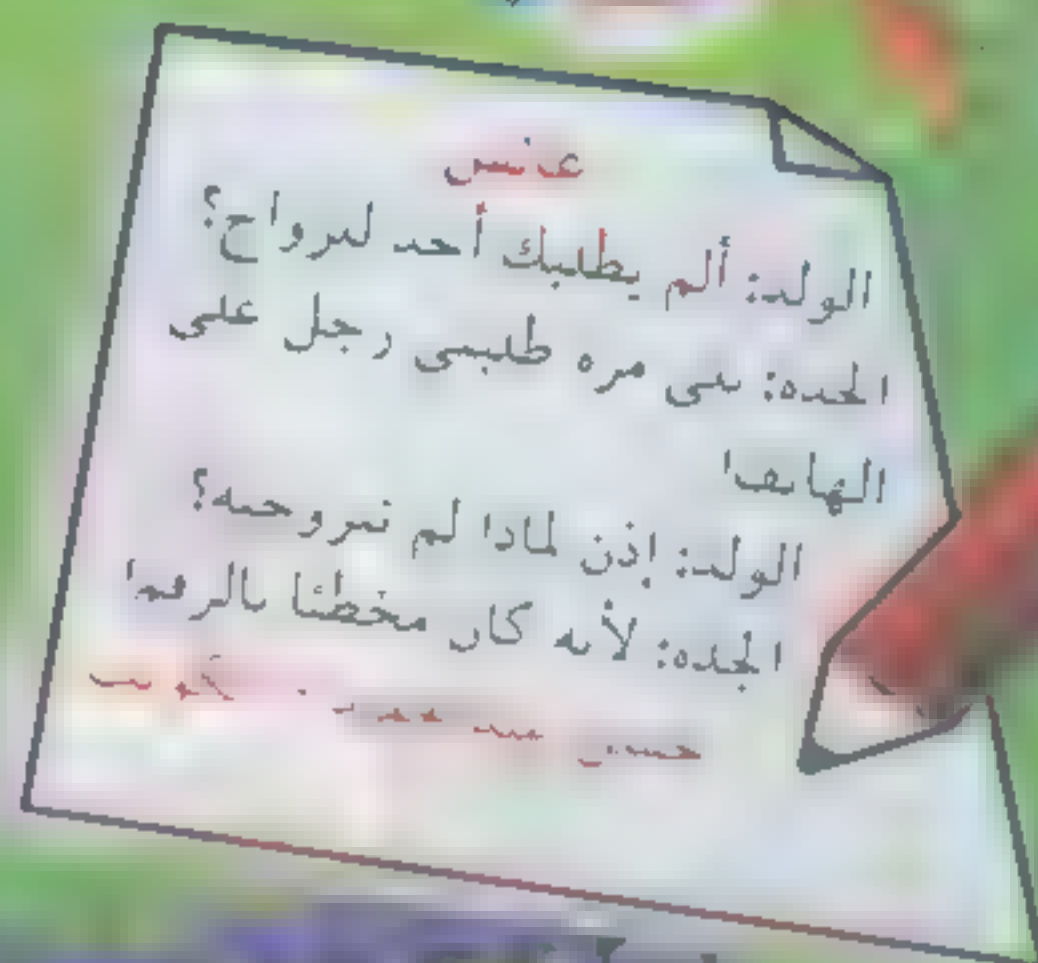 عانس
الولد: ألم يطلبك أحد للزواج؟
الجدة: بلى مرة طلبني رجل على
الهاتف!
الولد: إذن لماذا لم تتزوجيه؟
الجدة: لأنه كان مخطئا بالرقم!